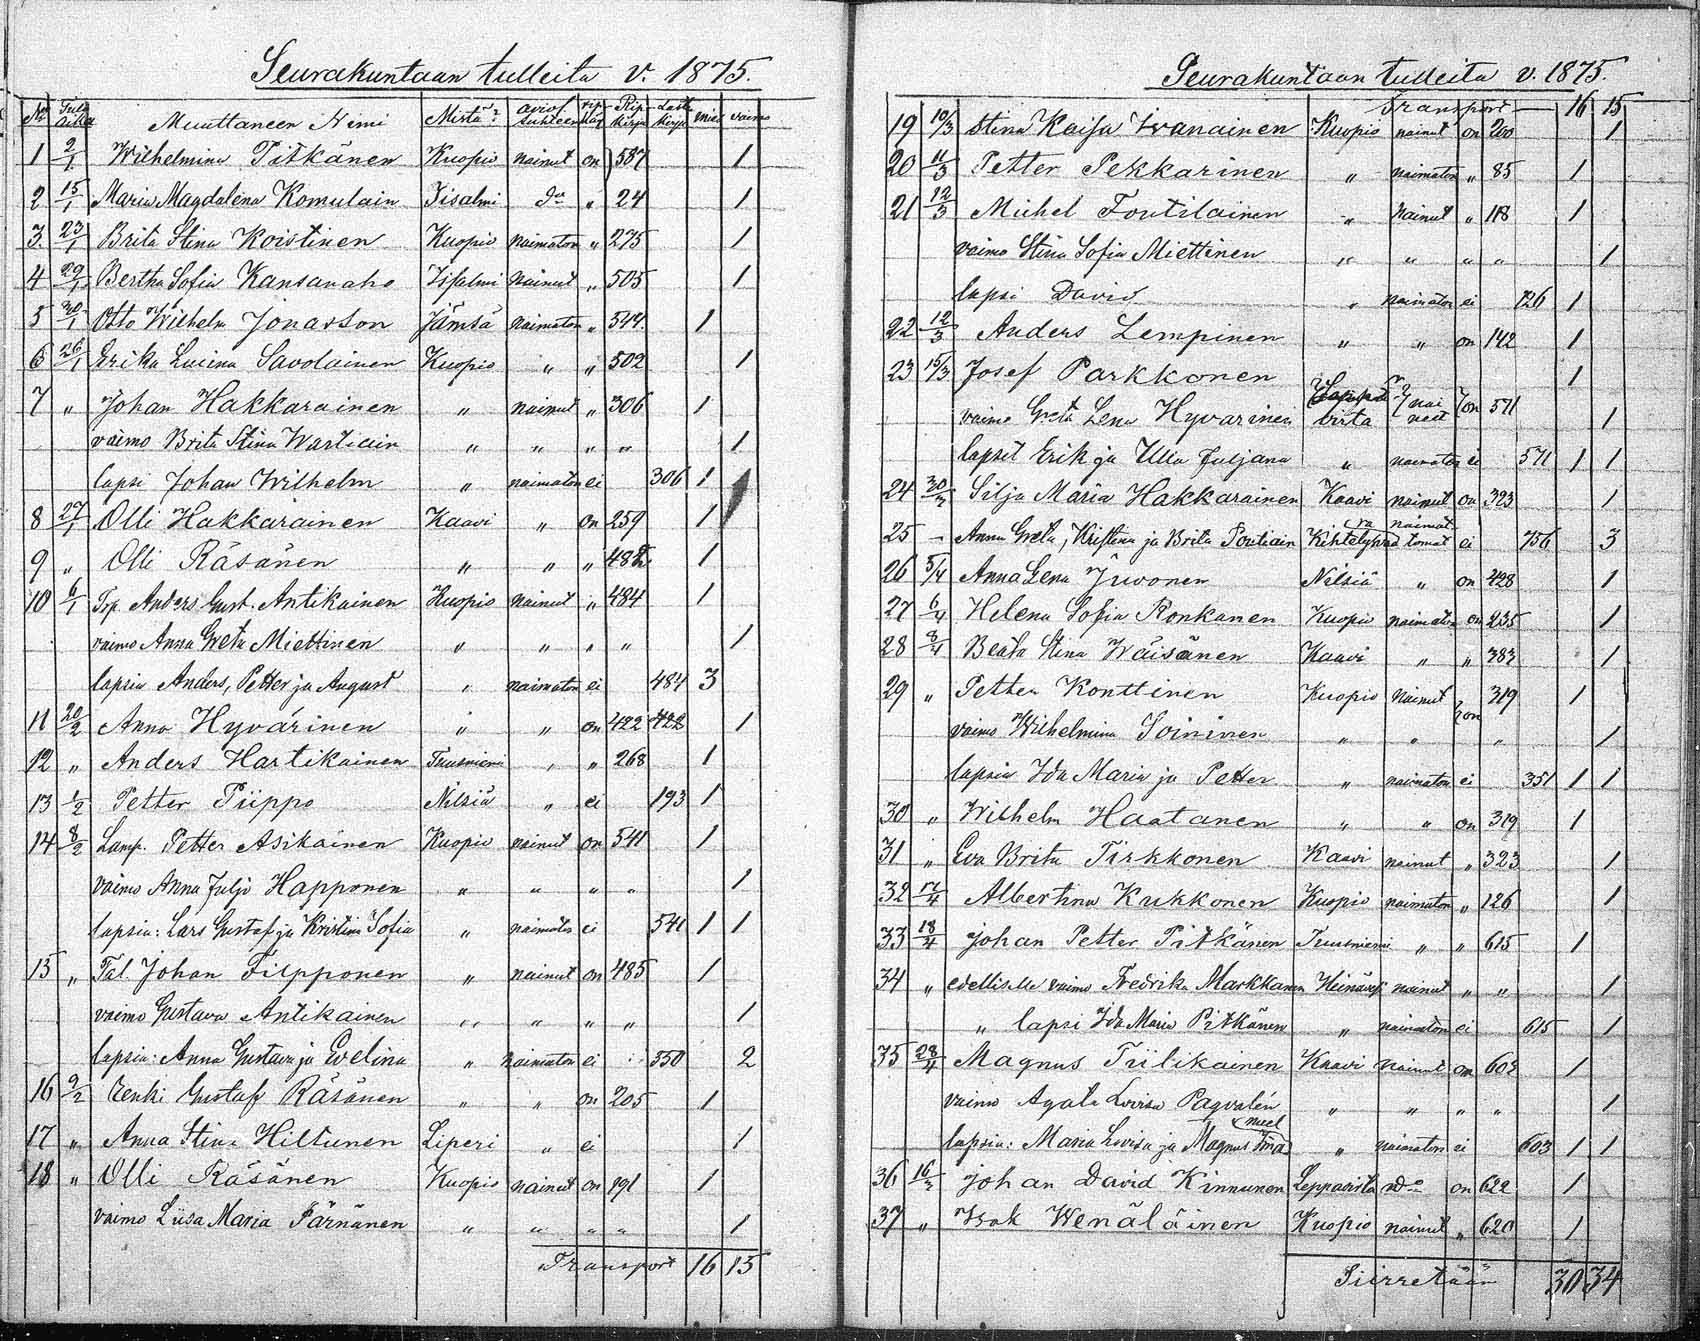 Seurakuntaan tulleita v. 1875.
No Tulo aika Muuttaneen Nimi Mistä? aviol. suhteen Rip. kirja Laste kirja mies vaimo
1 2/1 Wilhelmina Pitkänen Kuopio nainut on 587 1
2 15/1 Maria Magdalena Komulain Iisalmi do " 24 1
3 23/1 Brita Stina Koistinen Kuopio naimaton " 275 1
4 29/1 Bertha Sofia Kansanaho Iisalmi nainut " 505 1
5 30/1 Otto Wilhelm Jonasson Jämsä naimaton " 544 1
6 26/1 Erika Lovina Savolainen Kuopio " " 502 1
7 " Johan Hakkarainen " nainut " 306 1
vaimo Brita Stina Wartiain " " " " 1
lapsi Johan Wilhelm " naimaton ei 306 1
8 27/1 Olli Hakkarainen Kaavi " on 259 1
9 " Olli Räsänen " " " 482 1
10 6/1 Trp. Anders Gust. Antikainen Kuopio nainut " 484 1
vaimo Anna Greta Miettinen " " " " 1
lapsia Anders, Petter ja August " naimaton ei 484 3
11 20/2 Anna Hyvärinen " " on 422 422 1
12 " Anders Hartikainen Tuusniemi " " 268 1
13 1/2 Petter Piippo Nilsiä " ei 193 1
14 8/2 Lamp. Petter Asikainen Kuopio nainut on 541 1
vaimo Anna Julja Happonen " " " " 1
lapsia: Lars Gustaf ja Kristina Sofia " naimaton ei 541 1 1
15 " Tal. Johan Filpponen " nainut on 485 1
vaimo Gustava Antikainen " " " " 1
lapsia: Anna Gustava ja Evelina " naimaton ei 350 2
16 9/2 Renki Gustaf Räsänen " " on 205 1
17 " Anna Stina Hiltunen Liperi " ei 1
18 " Olli Räsänen Kuopio nainut on 191 1
vaimo Liisa Maria Pärnänen " " " " 1
Transport 16 15
Seurakuntaan tulleita v. 1875.
Transport 16 15
19 10/3 Stina Kaisa Iwanainen Kuopio nainut on 200 1
20 11/3 Petter Pekkarinen " naimaton " 85 1
21 12/3 Michel Toutilainen " nainut " 118 1
vaimo Stina Sofia Miettinen " " " " 1
lapsi David " naimaton ei 726 1
22 12/3 Anders Lempinen " " on 142 1
23 15/3 Josef Parkkonen 1
vaimo Greta Lena Hyvärinen virta nai neet on 571 1
lapset Erik ja Ulla Juljana " naimaton ei 571 1 1
24 30/3 Silja Maria Hakkarainen Kaavi nainut on 323 1
25 – Anna Greta, Kristina ja Brita Poutiain Kihtelysvaa naimat tomat ei 756 3
26 5/4 Anna Lena Juvonen Nilsiä " on 428 1
27 6/4 Helena Sofia Ronkanen Kuopio naimaton on 235 1
28 8/4 Beata Stina Wäisänen Kaavi " " 383 1
29 " Petter Konttinen Kuopio Nainut on 319 1
vaimo Wilhelmina Soininen " " " 1
lapsia Ida Maria ja Petter " naimaton ei 351 1 1
30 " Wilhelm Haatanen " " on 319 1
31 " Eva Brita Tirkkonen Kaavi nainut " 323 1
32 17/4 Albertina Kukkonen Kuopio naimaton " 126 1
33 18/4 Johan Petter Pitkänen Tuusniemi " " 615 1
34 " edellisen vaimo Fredrika Markkanen Heinäves nainut " " 1
" lapsi Ida Maria Pitkänen " naimaton ei 615 1
35 28/4 Magnus Tiilikainen Kaavi nainut on 603 1
vaimo Agata Lovisa Pagvalén " " " " 1
lapsia: Maria Lovisa ja Magnus " naimaton ei 603 1 1
36 16/3 Johan David Kinnunen Leppavirta do on 622 1
37 " Isak Wenäläinen Kuopio nainut " 620 1
Siirretään 30 34